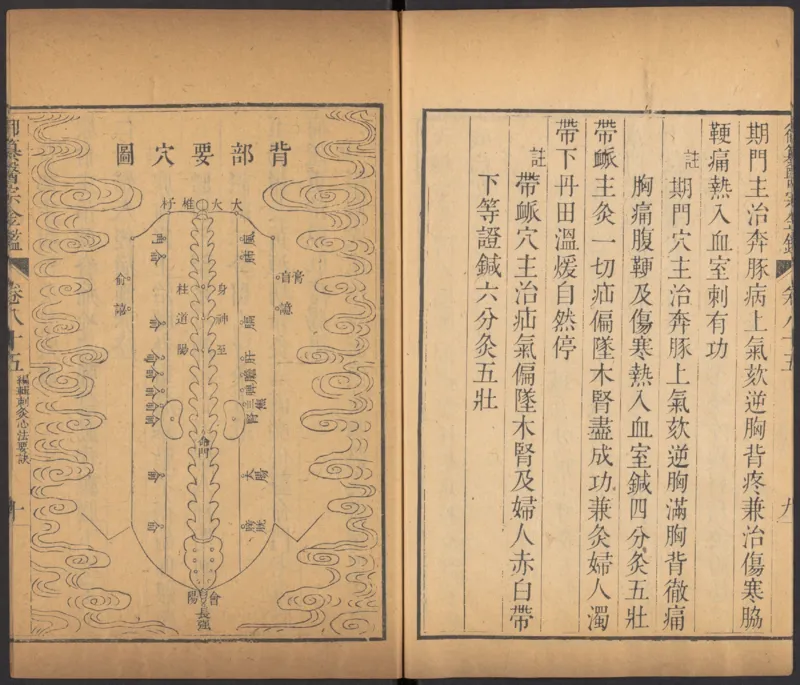 御纂醫宗金鑑
卷八十五
九
期門主治奔豚病上氣欬逆胸背疼兼治傷寒脇
鞕痛熱入血室刺有功
註
期門穴主治奔豚上氣欬逆胸滿胸背徹痛
胸痛腹鞕及傷寒熱入血室鍼四分灸五壯
帶衇主灸一切疝偏墜木腎盡成功兼灸婦人濁
帶下丹田溫煖自然停
註
帶衇穴主治疝氣偏墜木腎及婦人赤白帶
下等證鍼六分灸五壯
背部要穴圖
大
大椎
杼
風門
肺俞
膏肓俞
譩譆
身柱
神道
至陽
膈俞
肝俞
膽俞
脾俞
三焦俞
腎俞
命門
大腸俞
膀胱俞
會陽
長强
御纂醫宗金鑑
卷八十五
編輯刺灸心法要訣
十